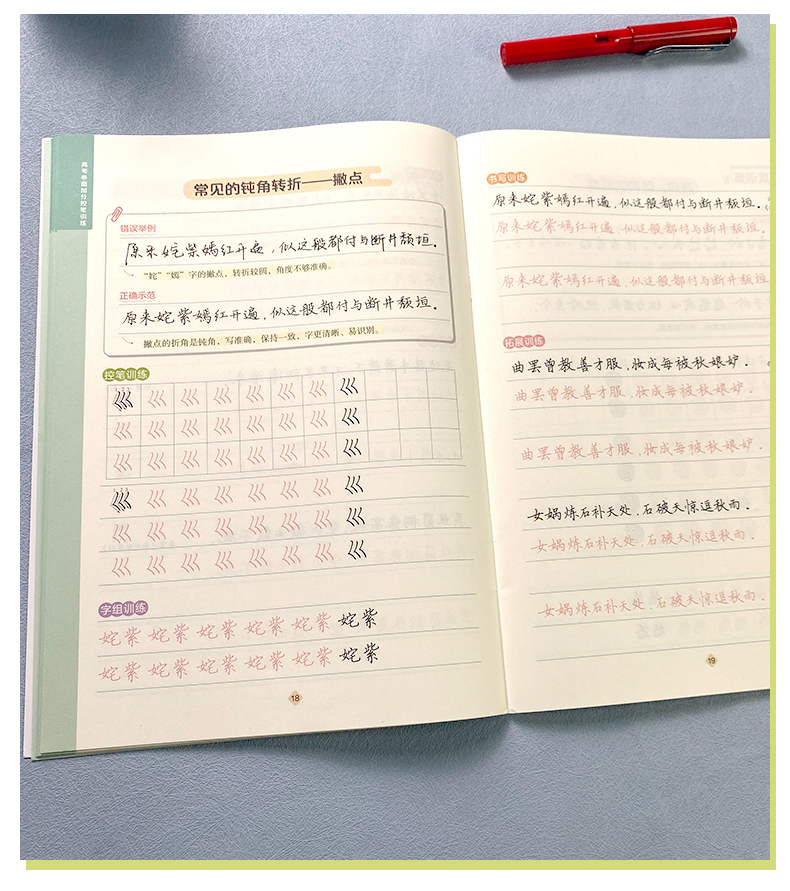 高考卷面加分控笔训练
常见的钝角转折——撇点
错误举例
原来姹紫嫣红开遍，似这般都付与断井颓垣。
“姹”“嫣”字的撇点，转折较圆，角度不够准确。
正确示范
原来姹紫嫣红开遍，似这般都付与断井颓垣。
撇点的折角是钝角，写准确，保持一致，字更清晰、易识别。
控笔训练
字组训练
姹紫 姹紫 姹紫 姹紫 姹紫 姹紫
姹紫 姹紫 姹紫 姹紫 姹紫 姹紫
18
书写训练
原来姹紫嫣红开遍，似这般都付与断井颓垣。
原来姹紫嫣红开遍，似这般都付与断井颓垣。
原来姹紫嫣红开遍，似这般都付与断井颓垣
拓展训练
曲罢曾教善才服，妆成每被秋娘妒。
曲罢曾教善才服，妆成每被秋娘妒。
曲罢曾教善才服，妆成每被秋娘妒。
女娲炼石补天处，石破天惊逗秋雨。
女娲炼石补天处，石破天惊逗秋雨。
女娲炼石补天处，石破天惊逗秋雨。
19